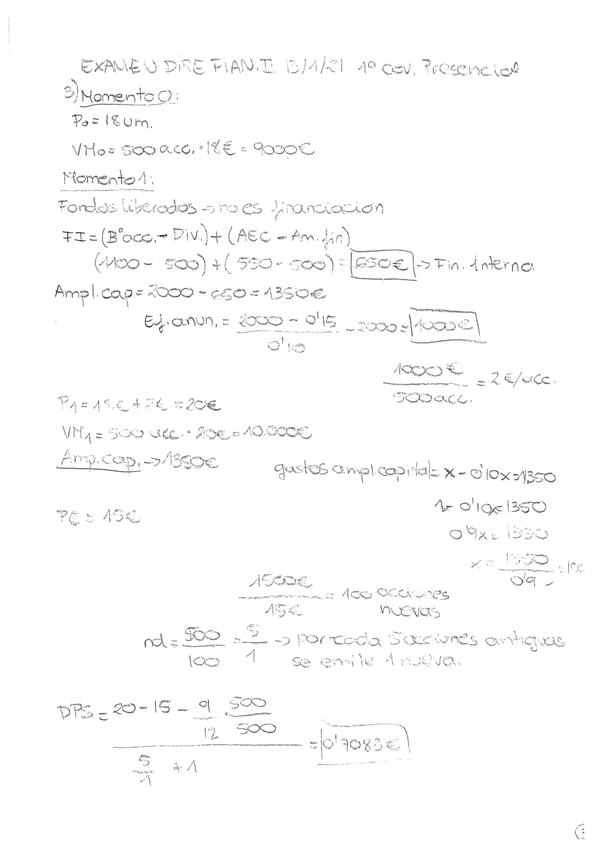 EXAMEN DIRE FIAN.II 13/1/21 1º cov. Presencial
3) Momento 0:
P₀ = 18 um.
VM₀ = 500 acc. · 18€ = 9000€
Momento 1:
Fondos liberados → no es financiación
FI = (Bº acc. - Div.) + (AEC - Am. fin)
(1100 - 500) + (550 - 500) = 650€ → Fin. Interna
Ampl. cap = 2000 - 650 = 1350€
Ej. anun. = 2000 - 0'15 / 0'10 - 2000 = 1000€
1000€ / 500 acc. = 2€/acc.
P₁ = 18€ + 2€ = 20€
VM₁ = 500 acc. · 20€ = 10.000€
Amp. cap. → 1350€
gastos ampl. capital = x - 0'10x = 1350
1 - 0'10x = 1350
0'9x = 1350
x = 1350 / 0'9 =
PE = 15€
1500€ / 15€ = 100 acciones nuevas
nd = 500 / 100 = 5 / 1 → por cada 5 acciones antiguas
se emite 1 nueva.
DPS = 20 - 15 - 9/12 · 500/500 / 5/1 + 1 = 0'7083€